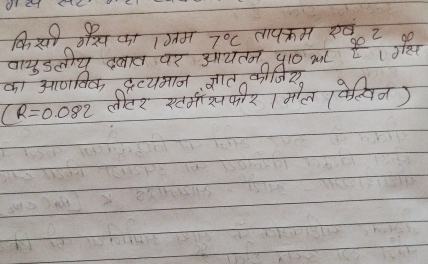 किसी गैस का 1 ग्राम 7°C तापक्रम एवं 2
वायुमंडलीय दबाव पर आयतन 410 ml है । गैस
का आणविक द्रव्यमान ज्ञात कीजिए
(R=0.082 लीटर एटमॉस्फीर / मोल / केल्विन)